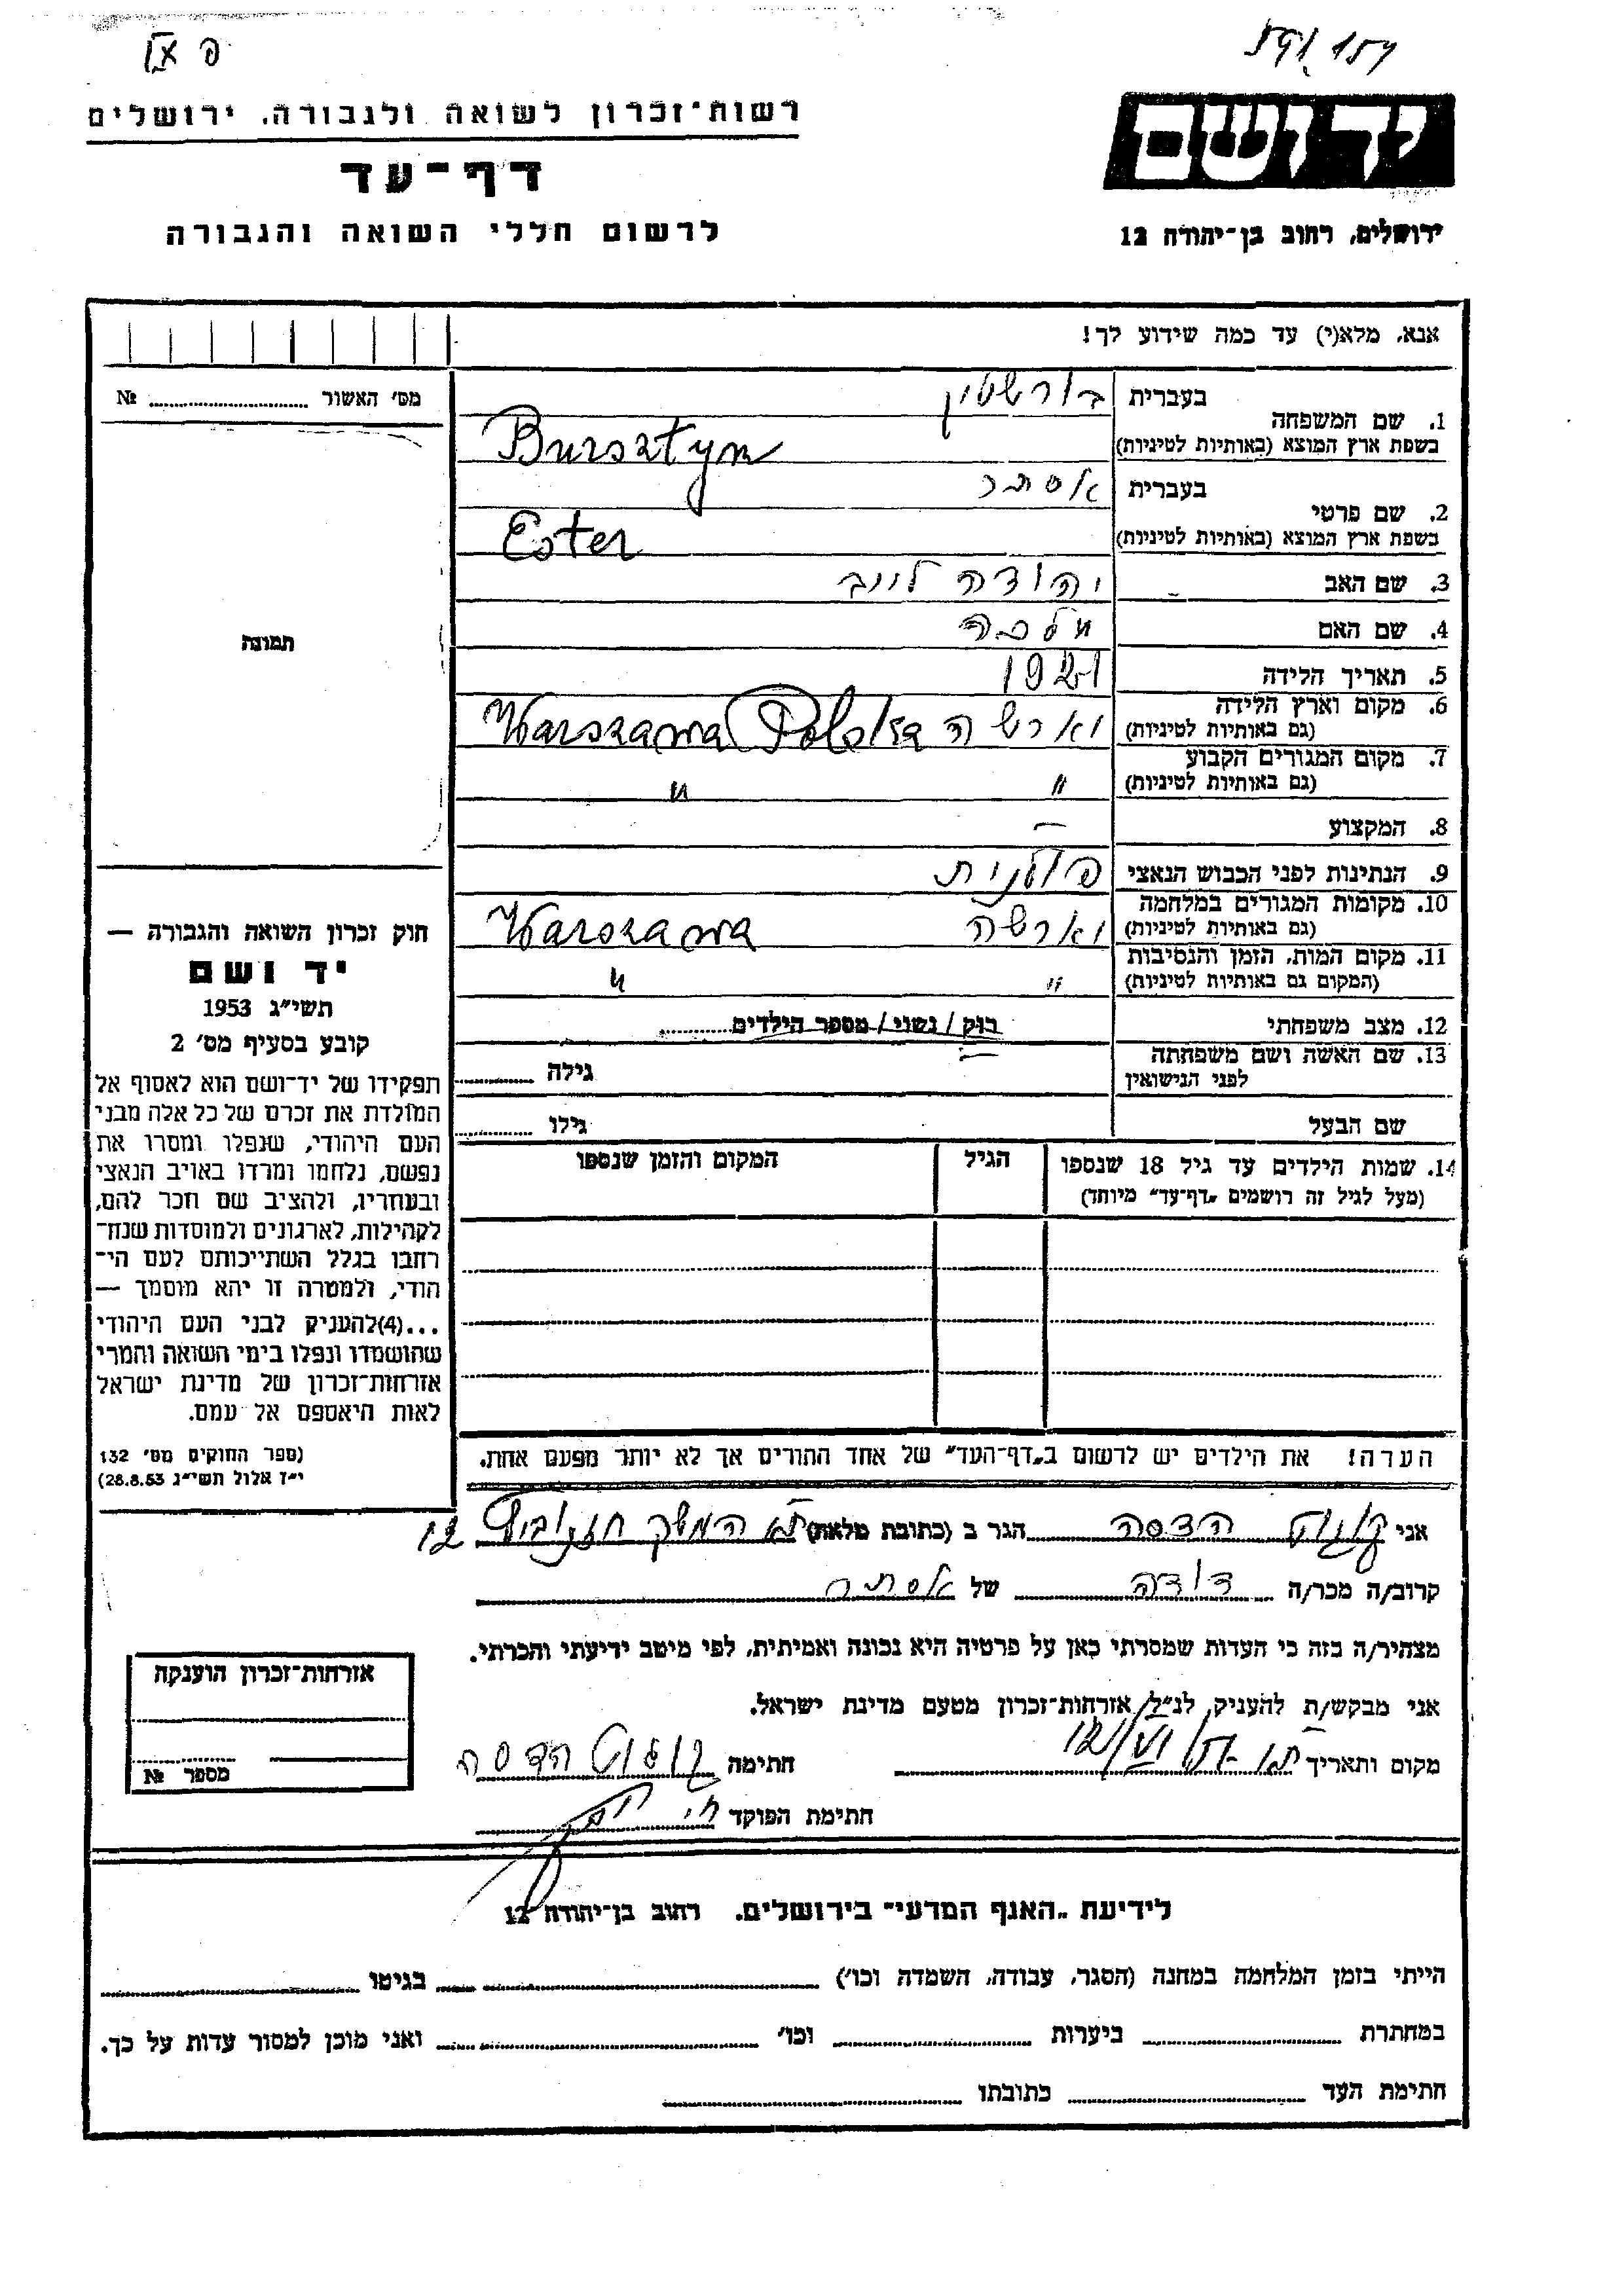 יד ושם
ירושלים, רחוב בן-יהודה 12
רשות-זכרון לשואה ולגבורה, ירושלים
דף-עד
לרשום חללי השואה והגבורה
אנא, מלא(י) עד כמה שידוע לך!
1. שם המשפחה בעברית בורשטין
בשפת ארץ המוצא (באותיות לטיניות) Bursztyn
2. שם פרטי בעברית אסתר
בשפת ארץ המוצא (באותיות לטיניות) Ester
3. שם האב יהודה לייב
4. שם האם מלכה
5. תאריך הלידה 1921
6. מקום וארץ הלידה (גם באותיות לטיניות) וארשה Warszawa Polska
7. מקום המגורים הקבוע (גם באותיות לטיניות) " "
8. המקצוע —
9. הנתינות לפני הכבוש הנאצי פולנית
10. מקומות המגורים במלחמה (גם באותיות לטיניות) וארשה Warszawa
11. מקום המות, הזמן והנסיבות (המקום גם באותיות לטיניות) " "
12. מצב משפחתי רוק / נשוי / מספר הילדים
13. שם האשה ושם משפחתה לפני הנישואין — גילה
שם הבעל גילו
14. שמות הילדים עד גיל 18 שנספו הגיל המקום והזמן שנספו
(מעל לגיל זה רושמים "דף-עד" מיוחד)
הערה! את הילדים יש לרשום ב"דף-העד" של אחד ההורים אך לא יותר מפעם אחת.
מס' האשור № 
תמונה
חוק זכרון השואה והגבורה —
יד ושם
תשי"ג 1953
קובע בסעיף מס' 2
תפקידו של יד-ושם הוא לאסוף אל
המולדת את זכרם של כל אלה מבני
העם היהודי, שנפלו ומסרו את
נפשם, נלחמו ומרדו באויב הנאצי
ובעוזריו, ולהציב שם וזכר להם,
לקהילות, לארגונים ולמוסדות שנח-
רבו בגלל השתייכותם לעם הי-
הודי, ולמטרה זו יהא מוסמך —
...(4)להעניק לבני העם היהודי
שהושמדו ונפלו בימי השואה והמרי
אזרחות-זכרון של מדינת ישראל
לאות היאספם אל עמם.
(ספר החוקים מס' 132
י"ז אלול תשי"ג 28.8.53)
אני הדסה הגר ב (כתובת מלאה) ת"א 12
קרוב/ה מכר/ה דודה של אסתר
מצהיר/ה בזה כי העדות שמסרתי כאן על פרטיה היא נכונה ואמיתית, לפי מיטב ידיעתי והכרתי.
אני מבקש/ת להעניק לנ"ל אזרחות-זכרון מטעם מדינת ישראל.
מקום ותאריך חתימה הדסה
חתימת הפוקד
אזרחות-זכרון הוענקה
מספר №
לידיעת "האגף המדעי" בירושלים, רחוב בן-יהודה 12
הייתי בזמן המלחמה במחנה (הסגר, עבודה, השמדה וכו') בגיטו
במחתרת ביערות וכו' ואני מוכן למסור עדות על כך.
חתימת העד כתובתו